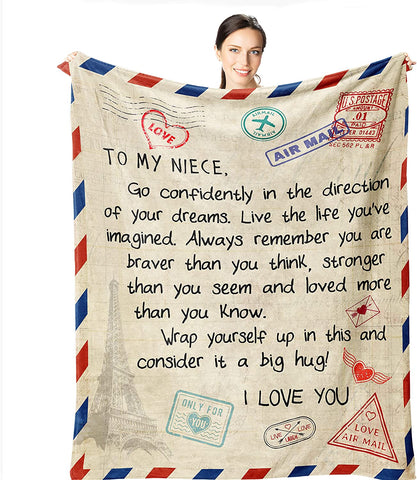 U.S. POSTAGE
AIRMAIL
AMOUNT
.01
PAID
LOVE
AIRMAIL
AIR MAIL
SEC 562 PL & R
TO MY NIECE,
Go confidently in the direction
of your dreams. Live the life you've
imagined. Always remember you are
braver than you think, stronger
than you seem and loved more
than you know.
Wrap yourself up in this and
consider it a big hug!
I LOVE YOU
ONLY FOR
YOU
LIVE
LOVE
LAUGH
LOVE
AIR MAIL